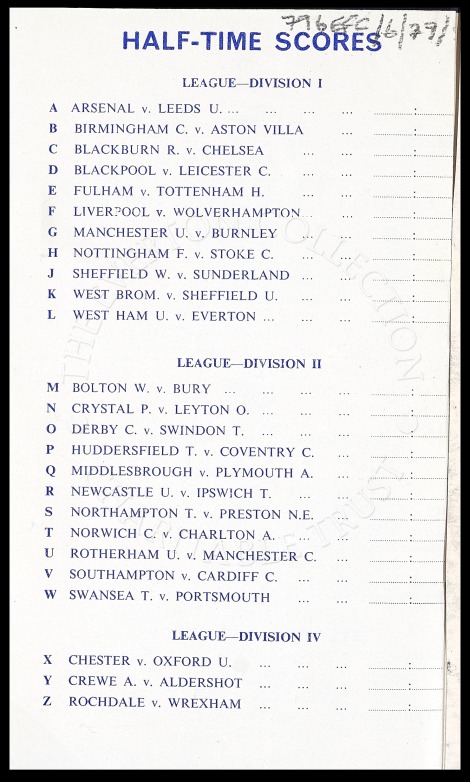 796EFC/6/79/
HALF-TIME SCORES
LEAGUE—DIVISION I
A ARSENAL v. LEEDS U. ... ... ... ... :
B BIRMINGHAM C. v. ASTON VILLA ... :
C BLACKBURN R. v. CHELSEA ... ... :
D BLACKPOOL v. LEICESTER C. ... ... :
E FULHAM v. TOTTENHAM H. ... ... :
F LIVERPOOL v. WOLVERHAMPTON... ... :
G MANCHESTER U. v. BURNLEY ... ... :
H NOTTINGHAM F. v. STOKE C. ... ... :
J SHEFFIELD W. v. SUNDERLAND ... ... :
K WEST BROM. v. SHEFFIELD U. ... ... :
L WEST HAM U. v. EVERTON ... ... ... :
LEAGUE—DIVISION II
M BOLTON W. v. BURY ... ... ... ... :
N CRYSTAL P. v. LEYTON O. ... ... ... :
O DERBY C. v. SWINDON T. ... ... ... :
P HUDDERSFIELD T. v. COVENTRY C. ... :
Q MIDDLESBROUGH v. PLYMOUTH A. ... :
R NEWCASTLE U. v. IPSWICH T. ... ... :
S NORTHAMPTON T. v. PRESTON N.E. ... :
T NORWICH C. v. CHARLTON A. ... ... :
U ROTHERHAM U. v. MANCHESTER C. ... :
V SOUTHAMPTON v. CARDIFF C. ... ... :
W SWANSEA T. v. PORTSMOUTH ... ... :
LEAGUE—DIVISION IV
X CHESTER v. OXFORD U. ... ... ... :
Y CREWE A. v. ALDERSHOT ... ... ... :
Z ROCHDALE v. WREXHAM ... ... ... :
COLLECTION
CHARITABLE TRUST